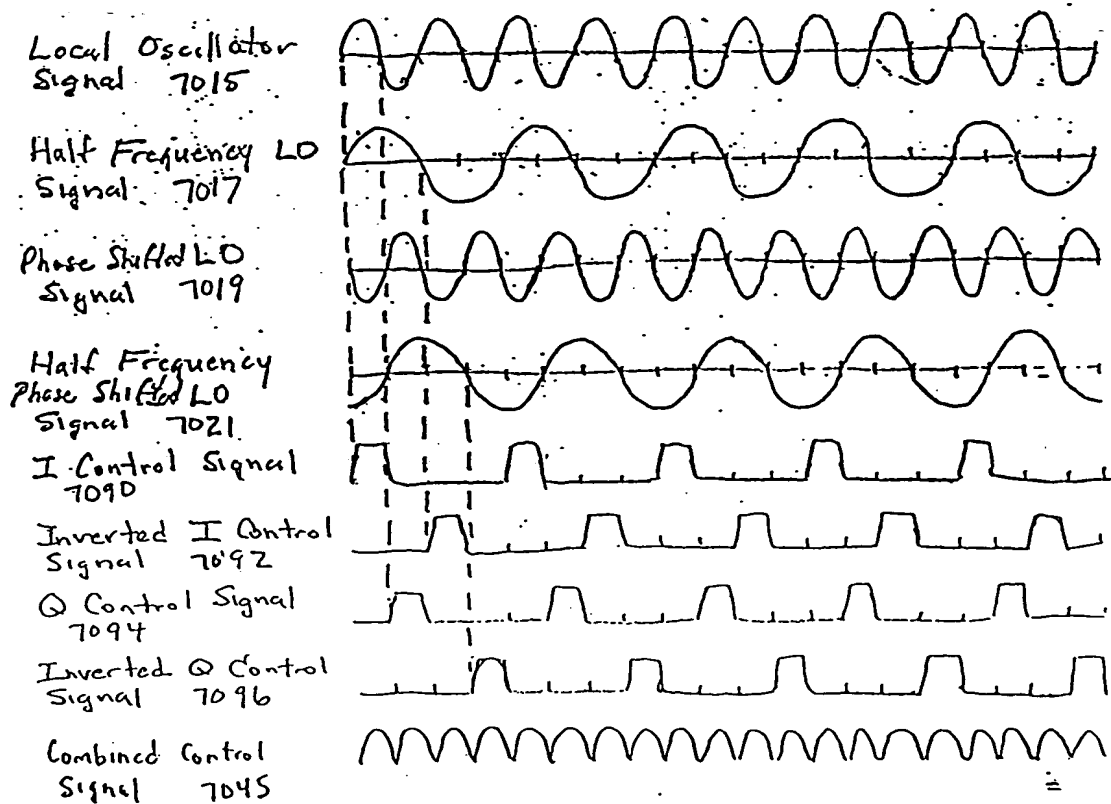 Local Oscillator
Signal 7015
Half Frequency LO
Signal 7017
Phase Shifted LO
Signal 7019
Half Frequency
Phase Shifted LO
Signal 7021
I Control Signal
7090
Inverted I Control
Signal 7092
Q Control Signal
7094
Inverted Q Control
Signal 7096
Combined Control
Signal 7045